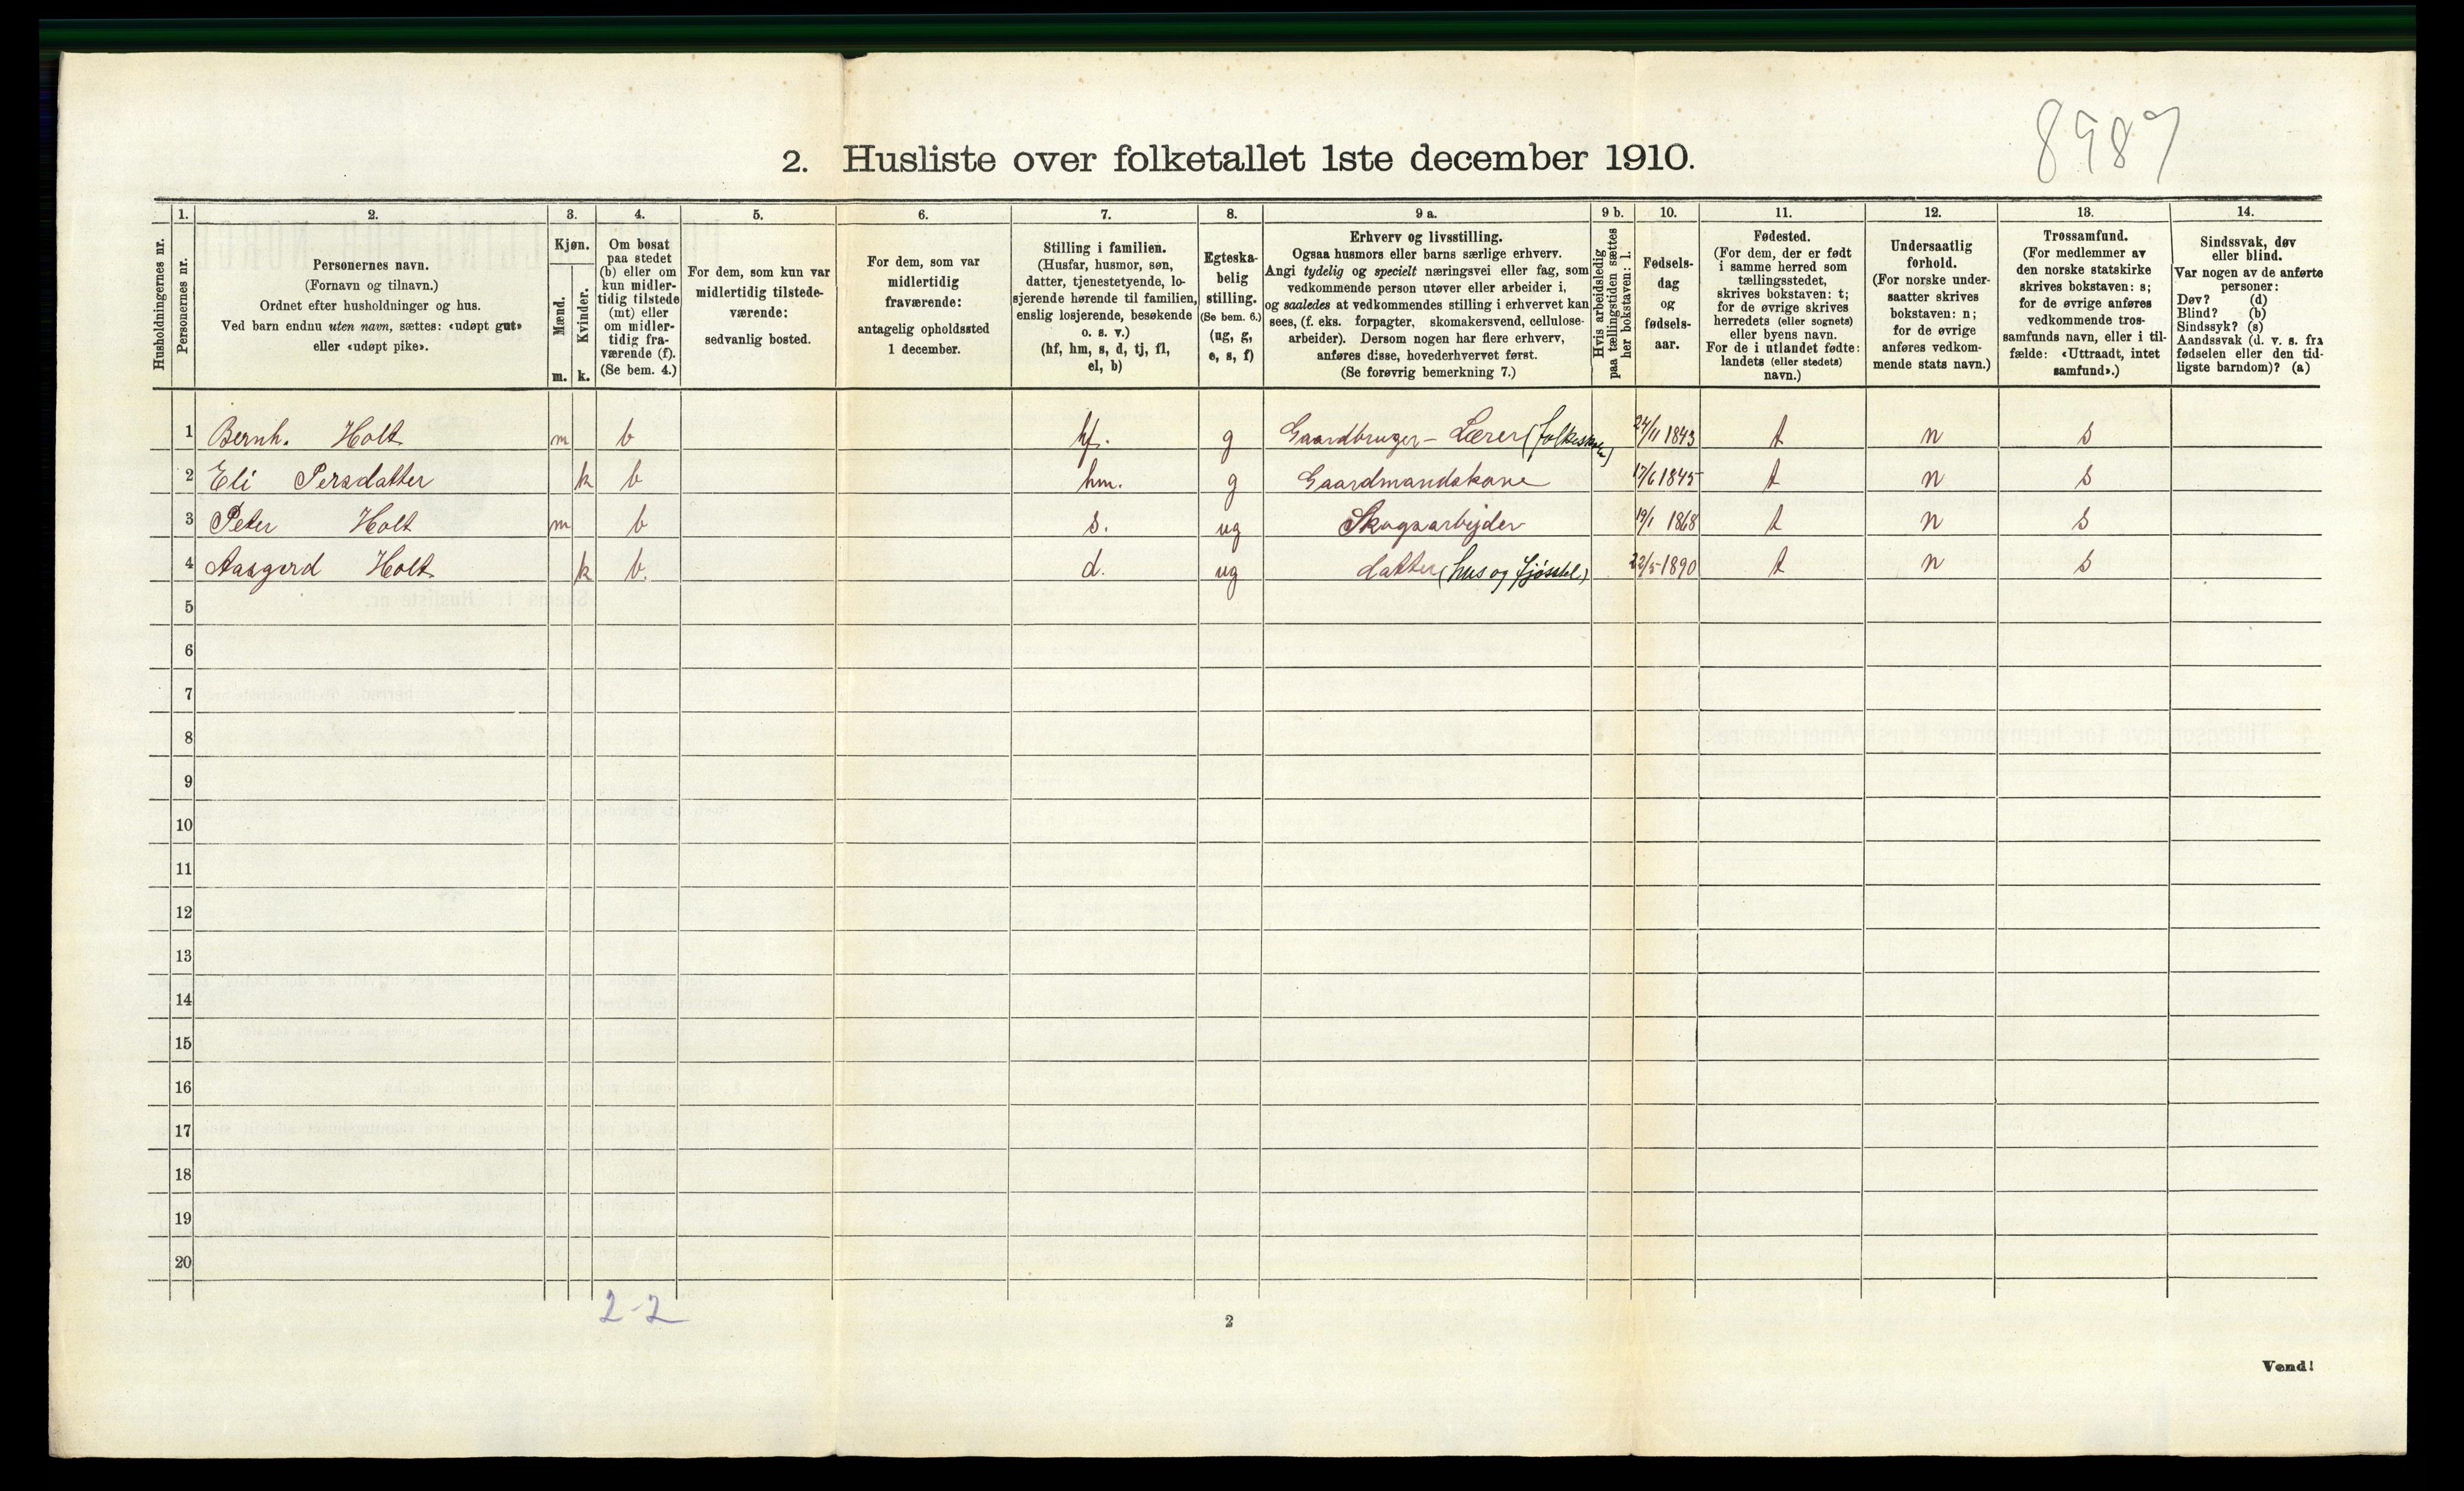 8987
2. Husliste over folketallet 1ste december 1910.
Husholdningernes nr.
1.
Personernes nr.
2.
Personernes navn.
(Fornavn og tilnavn.)
Ordnet efter husholdninger og hus.
Ved barn endnu uten navn, sættes: «udøpt gut»
eller «udøpt pike».
3.
Kjøn.
Mænd.
Kvinder.
m. k.
4.
Om bosat
paa stedet
(b) eller om
kun midler-
tidig tilstede
(mt) eller
om midler-
tidig fra-
værende (f).
(Se bem. 4.)
5.
For dem, som kun var
midlertidig tilstede-
værende:
sedvanlig bosted.
6.
For dem, som var
midlertidig
fraværende:
antagelig opholdssted
1 december.
7.
Stilling i familien.
(Husfar, husmor, søn,
datter, tjenestetyende, lo-
sjerende hørende til familien,
enslig losjerende, besøkende
o. s. v.)
(hf, hm, s, d, tj, fl,
el, b)
8.
Egteska-
belig
stilling.
(Se bem. 6.)
(ug, g,
e, s, f)
9 a.
Erhverv og livsstilling.
Ogsaa husmors eller barns særlige erhverv.
Angi tydelig og specielt næringsvei eller fag, som
vedkommende person utøver eller arbeider i,
og saaledes at vedkommendes stilling i erhvervet kan
sees, (f. eks. forpagter, skomakersvend, cellulose-
arbeider). Dersom nogen har flere erhverv,
anføres disse, hovederhvervet først.
(Se forøvrig bemerkning 7.)
9 b.
Hvis arbeidsledig
paa tællingstiden sættes
her bokstaven: l.
10.
Fødsels-
dag
og
fødsels-
aar.
11.
Fødested.
(For dem, der er født
i samme herred som
tællingsstedet,
skrives bokstaven: t;
for de øvrige skrives
herredets (eller sognets)
eller byens navn.
For de i utlandet fødte:
landets (eller stedets)
navn.)
12.
Undersaatlig
forhold.
(For norske under-
saatter skrives
bokstaven: n;
for de øvrige
anføres vedkom-
mende stats navn.)
13.
Trossamfund.
(For medlemmer av
den norske statskirke
skrives bokstaven: s;
for de øvrige anføres
vedkommende tros-
samfunds navn, eller i til-
fælde: «Uttraadt, intet
samfund».)
14.
Sindssvak, døv
eller blind.
Var nogen av de anførte
personer:
Døv? (d)
Blind? (b)
Sindssyk? (s)
Aandssvak (d. v. s. fra
fødselen eller den tid-
ligste barndom)? (a)
1 Bernh. Holt m b hf. g Gaardbruger - Lærer (folkeskole) 24/11 1843 t n s
2 Eli Persdatter k b hm. g Gaardmandskone 17/6 1845 t n s
3 Peter Holt m b s. ug Skogsarbejder 19/1 1868 t n s
4 Aasgerd Holt k b. d. ug datter (hus og fjøsstel) 22/5 1890 t n s
5
6
7
8
9
10
11
12
13
14
15
16
17
18
19
20
2-2
2
Vend!